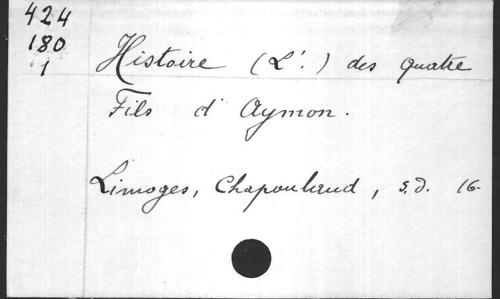 424
180
1
Histoire (L'.) des quatre
Fils d'Aymon.
Limoges, Chapoulaud, s.d. 16-